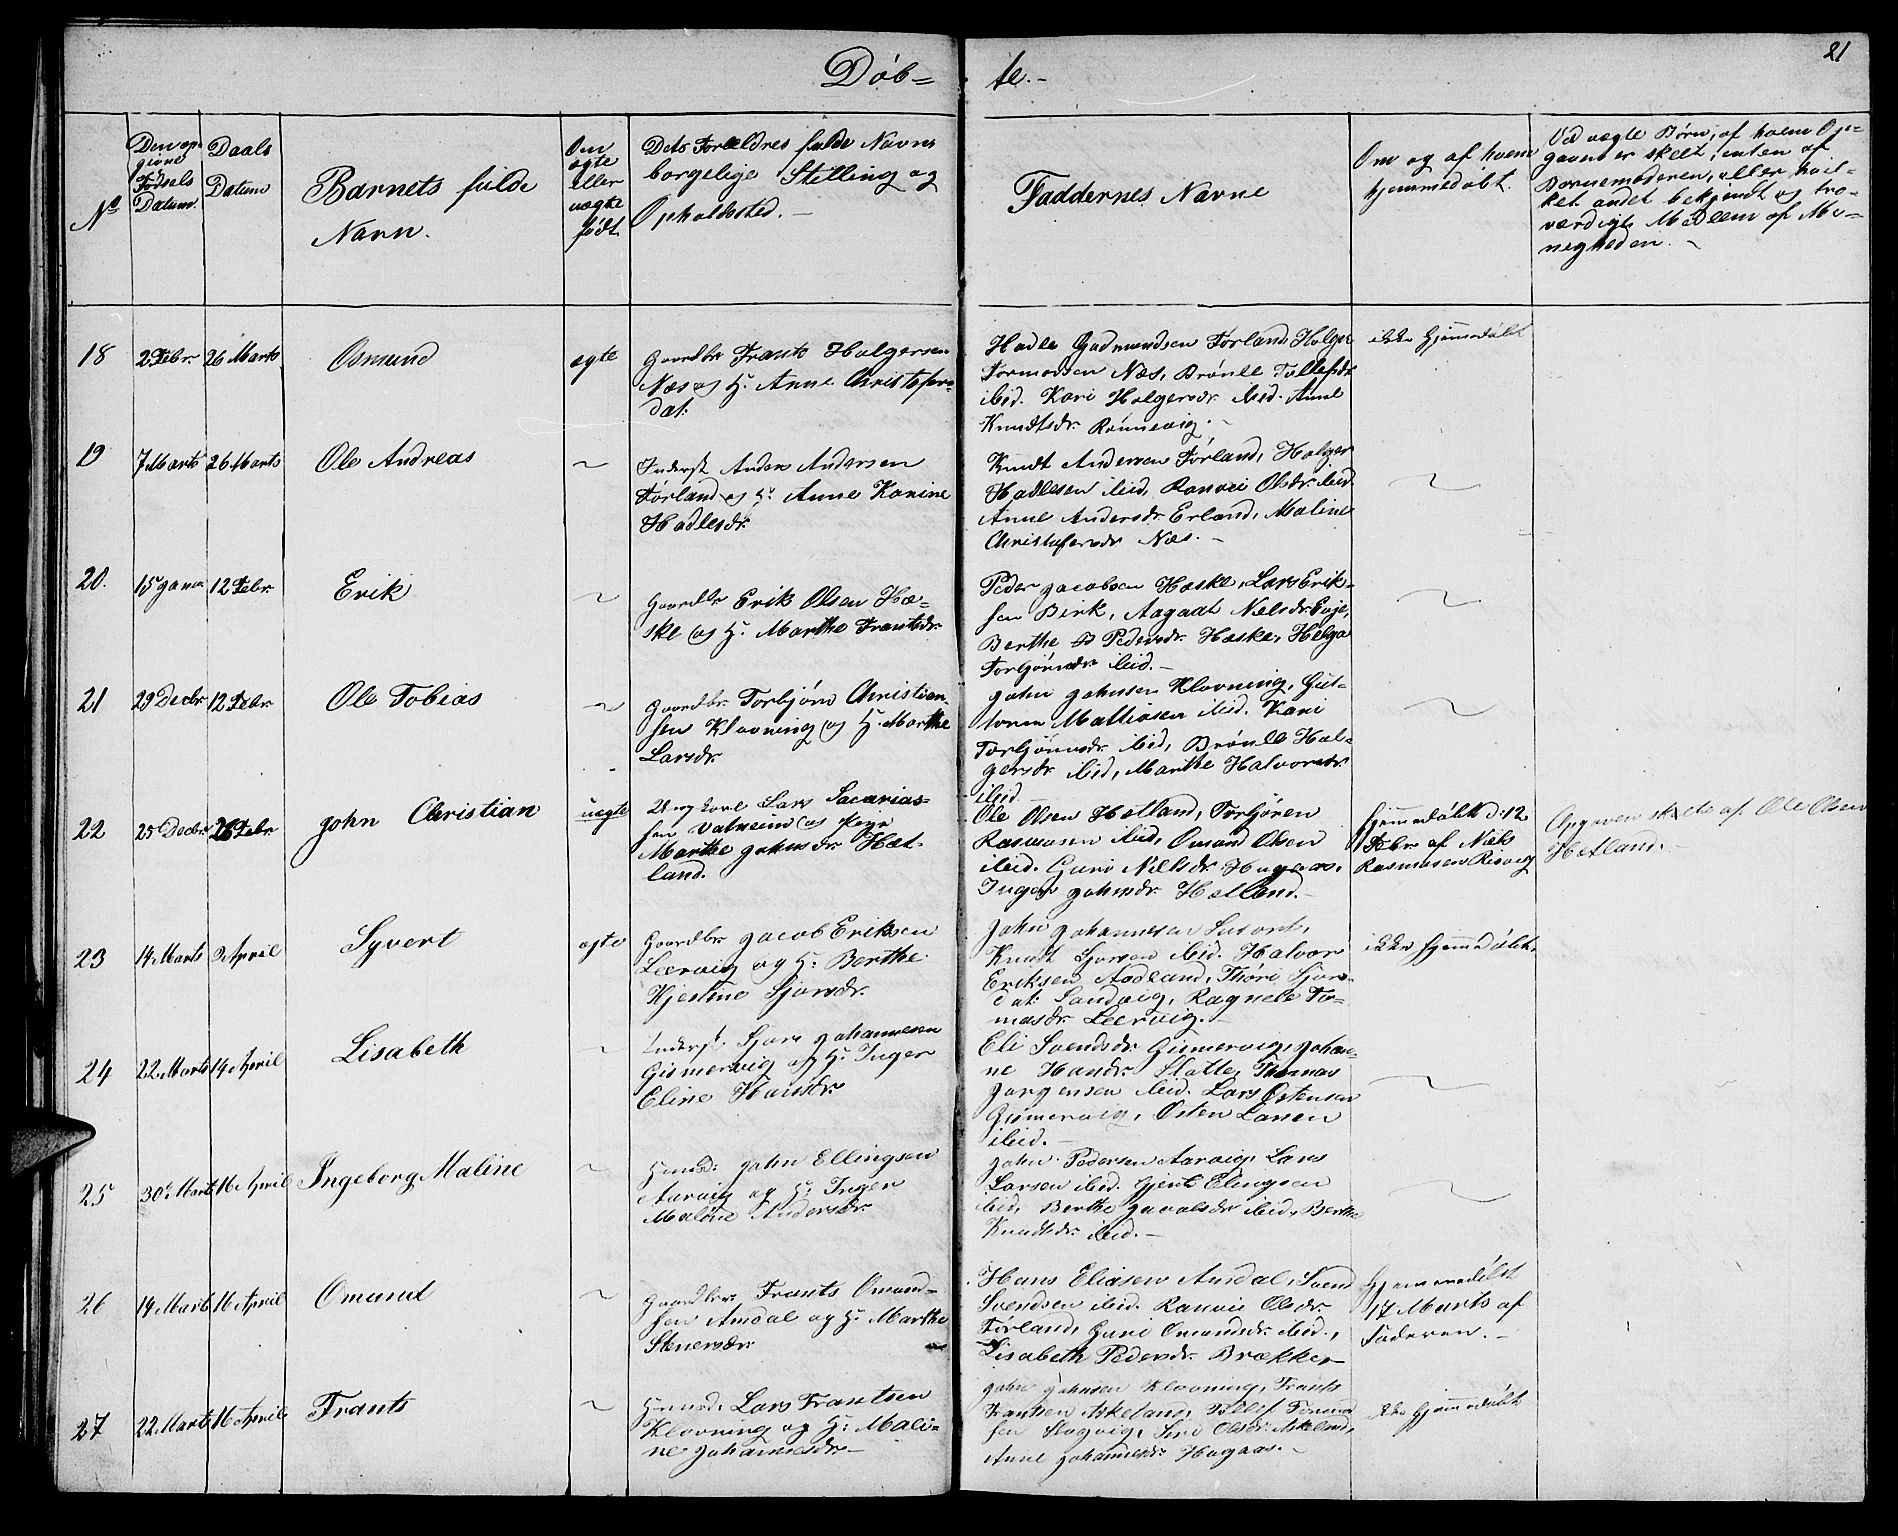 Døb=
te.-
21
No
Den op-
givne
Fødsels
Datum.
Daabs
Datum
Barnets fulde
Navn.
Om
ægte
eller
uægte
født.
Dets Forældres fulde Navne
borgelige Stelling og
Opholdssted. -
Faddernes Navne
Om og af hvem
hjemmedøbt.
Ved uægte Børn, af hvem Op-
gaven er skeet, enten af
Barnemoderen, eller hvil-
ket andet bekjendt og tro-
værdigt Medlem af Me-
nigheden. -
18
2 Febr.
26 Marts
Osmund
ægte
Gaardbr Frants Holgersen
Næs og H. Anne Christofers-
dat.
Hadle Gudmundsen Førland, Holger
Tormodsen Næs, Brønle Tollefsdr
ibid. Kari Holgersdr. ibid. Anne
Knudtsdr. Rønnevig. -
ikke hjemmedøbt
19
7 Marts
26 Marts
Ole Andreas
~
Inderst Anders Andersen
Førland og H. Anne Karine
Hadlesdr.
Knudt Andersen Førland, Holger
Hadlesen ibid, Ranvei Olsdr ibid.
Anne Andersdr. Erland, Maline
Christofersdr Næs. -
~
20.
15 Janu
12 Febr.
Erik
~
Gaardbr Erik Olsen Hæ-
ske og H. Marthe Frantsdr.
Peder Jacobsen Hæske, Lars Erik-
sen Birk, Aagaat Nelsdr. Eeje,
Berthe Pedersdr. Hæske, Helga
Torbjørnsdr ibid. -
~
21
29 Decbr
12 Febr.
Ole Tobias
~
Gaardbr. Torbjørn Christian-
sen Klovning og H. Marthe
Larsdr.
John Johnsen Klovning, Gut-
torm Mathiasen ibid. Kari
Torbjørnsdr. ibid, Brønle Hol-
gersdr. ibid, Marthe Halvorsdr
ibid. -
~
22
25 Decbr
26 Febr
John Christian
uægte
Ungkarl Lars Sacarias-
sen Valheim og Pige
Marthe Johnsdr. Hæt-
land.
Ole Olsen Hetland, Torbjøren
Rasmusen ibid, Omund Olsen
ibid. Guro Nilsdr. Hagaas,
Inger Johnsdr. Hetland. -
hjemmedøbt d. 12
Febr af Niels
Rasmusen Risvig
Opgaven skete af Ole Olsen
Hetland. -
23
14 Marts
9 April
Syvert
ægte
Gaardbr. Jacob Eriksen
Leervig og H. Berthe
Kjestine Sjorsdr.
John Johannesen
Knudt Sjorsen ibid. Halvor
Eriksen Aadland, Thøri Sjors-
dat. Sandvig, Ragnele To-
masdr. Leervig. -
ikke hjemmedøbt.
24
22 Marts
14 April
Lisabeth
~
Inderst, Sjors Johannesen
Gismervig og H. Inger
Eline Hansdr.
Eli Svendsdr. Gismervig, Johan-
ne Hansdr. Slotte, Thomas
Jørgensen ibid. Lars Østensen
Gismervig, Østen Larsen
ibid. -
~
25
30 Marts
16 April
Ingeborg Maline
~
Huusd: John Ellingsen
Aarvig og H. Inger
Maline Andersdr.
John Pedersen Aarvig, Lars
Larsen ibid. Gjert Elingsen
ibid, Berthe ibid, Berthe
Knudtsdr. ibid. -
~
26
14 Marts
16 April
Omund
~
Gaardbr. Frants Omund-
sen Amdal og H. Marthe
Stenersdr.
Hans Eliasen Amdal, Svend
Svendsen ibid. Ranvei Olsdr.
Førland, Guri Omundsdr. ibid.,
Lisabeth Pedersdr. Brækker
Hjemmedøbt
17 Marts af
Faderen. -
27
22 Marts
16 April
Frants
~
Huusd. Lars Frantsen
Klovning og H. Mali-
ne Johannesdr. -
John Johnsen Klovning, Frants
Frantsen Askeland, Tollef
sen Slogvig, Siri Olsdr. Askeland,
Anne Johannesdr. Hagaas. -
ikke hjemmedøbt